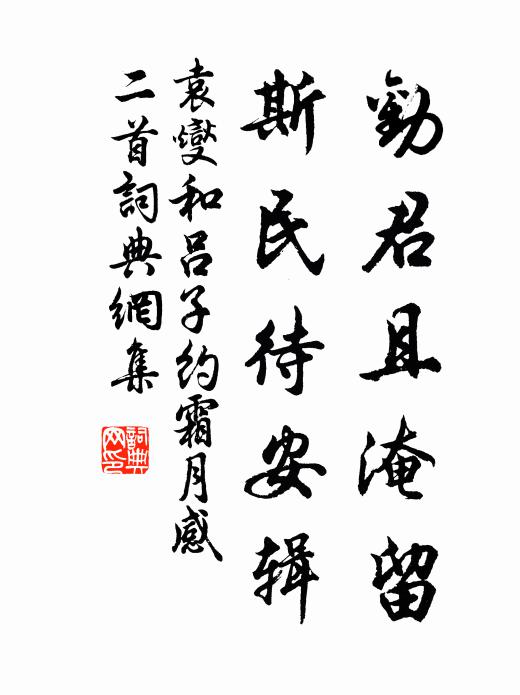 勸君且淹留
斯民待安輯
袁燮和吕子約霜月感
二首詞典網集
詞典
网印